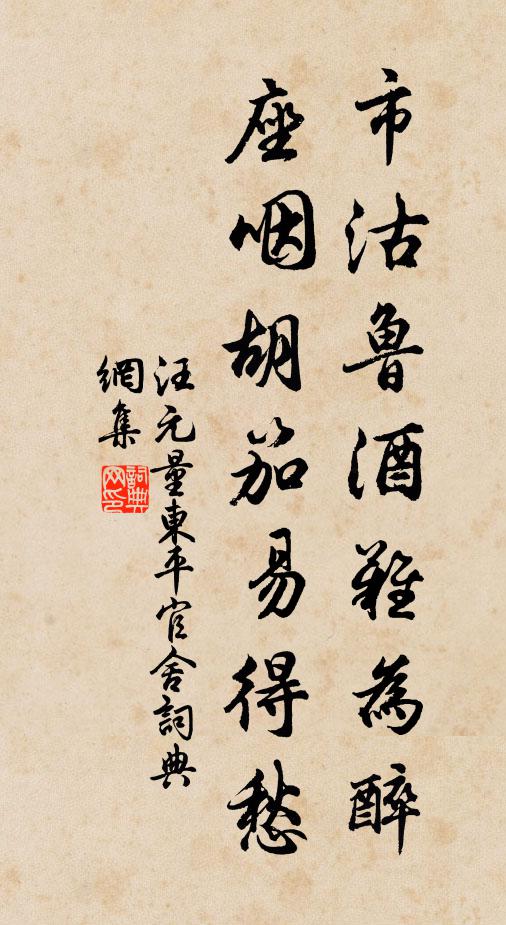 市沽魯酒難為醉
座咽胡笳易得愁
汪元量東平官舍詞典
網集
詞典網印